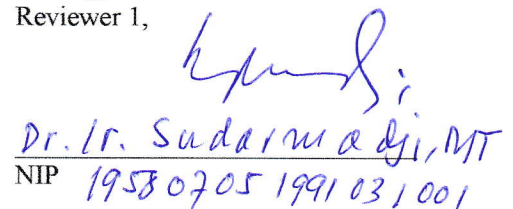 Reviewer 1,
Dr. Ir. Sudarmadji, MT
NIP 19580705 199103 1 001